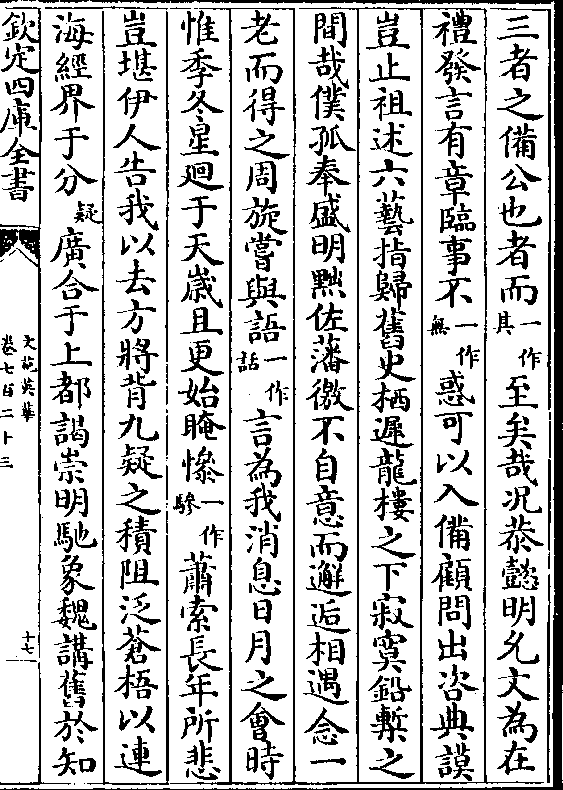 三者之備公也者而一作其至矣哉况恭懿明允文為在
禮發言有章臨事不一作無惑可以入備顧問出咨典謨
豈止祖述六藝指歸舊史栖遲龍樓之下寂寞鉛槧之
間哉僕孤奉盛明黜佐藩徼不自意而邂逅相遇念一
老而得之周旋嘗與語一作話言為我消息日月之會時
惟季冬星廻于天嵗且更始腌慘一作黲蕭索長年所悲
豈堪伊人告我以去方將背九疑之積阻泛蒼梧以連
海經界于分疑廣合于上都謁崇明馳象魏講舊於知
欽定四庫全書
文苑英華
卷七百二十三
十七